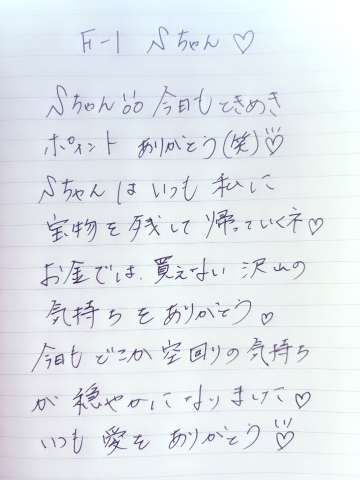 F-1 Sちゃん♡
Sちゃん 今日もときめき
ポイント ありがとう(笑)♡
Sちゃんは いつも 私に
宝物を 残して 帰っていくネ♡
お金では、買えない 沢山の
気持ちを ありがとう♡
今日も どこか 空回りの 気持ち
が 穏やかに なりました♡
いつも 愛を ありがとう♡